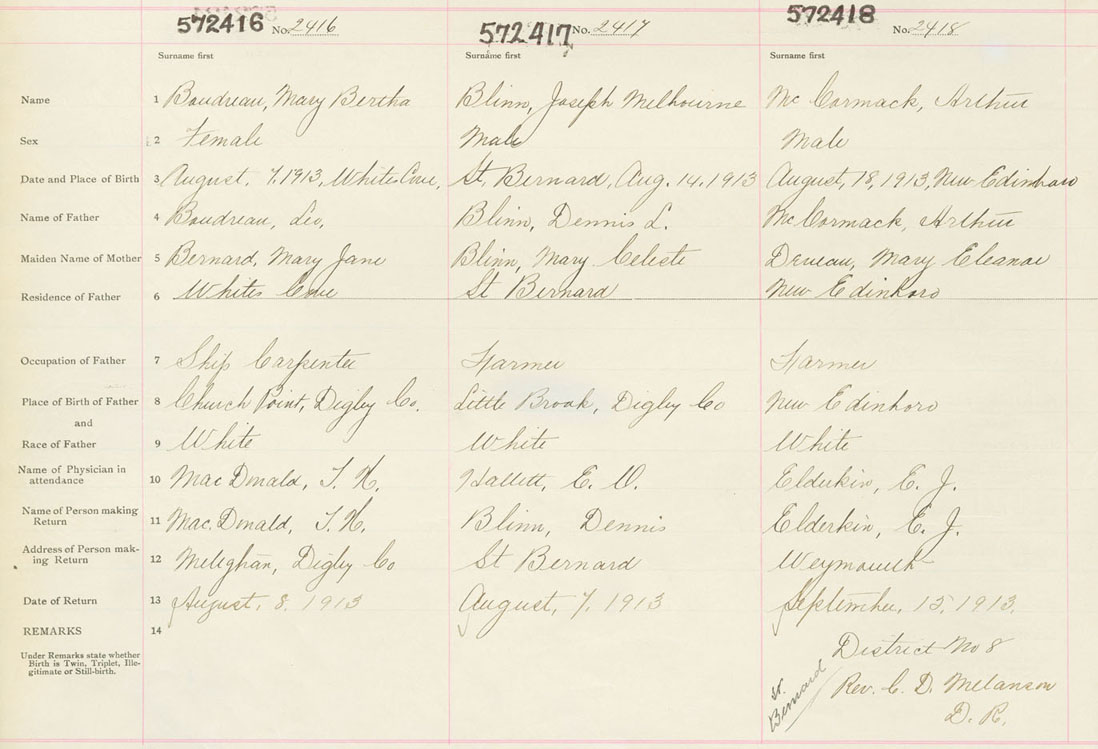 572416 No. 2416 572417 No. 2417 572418 No. 2418
Surname first Surname first Surname first
Name 1 Boudreau, Mary Bertha Blinn, Joseph Melbourne Mc Cormack, Arthur
Sex 2 Female Male Male
Date and Place of Birth 3 August, 7, 1913, Whites Cove, St. Bernard, Aug. 14. 1913 August, 18, 1913, New Edinboro
Name of Father 4 Boudreau, Leo, Blinn, Dennis L. Mc Cormack, Arthur
Maiden Name of Mother 5 Bernard, Mary Jane Blinn, Mary Celeste Deveau, Mary Eleanor
Residence of Father 6 Whites Cove St Bernard New Edinboro
Occupation of Father 7 Ship Carpenter Farmer Farmer
Place of Birth of Father 8 Church Point, Digby Co. Little Brook, Digby Co New Edinboro
and
Race of Father 9 White White White
Name of Physician in
attendance 10 MacDonald, T. H. Hallett, E. O. Elderkin, E. J.
Name of Person making
Return 11 Mac.Donald, T. H. Blinn, Dennis Elderkin, E. J.
Address of Person mak-
ing Return 12 Meteghan, Digby Co St Bernard Weymouth
Date of Return 13 August, 8. 1913 August, 7. 1913 September, 15. 1913.
REMARKS 14
Under Remarks state whether
Birth is Twin, Triplet, Ille-
gitimate or Still-birth.
District No 8
St. Bernard
Rev. C. D. Melanson
D. R.